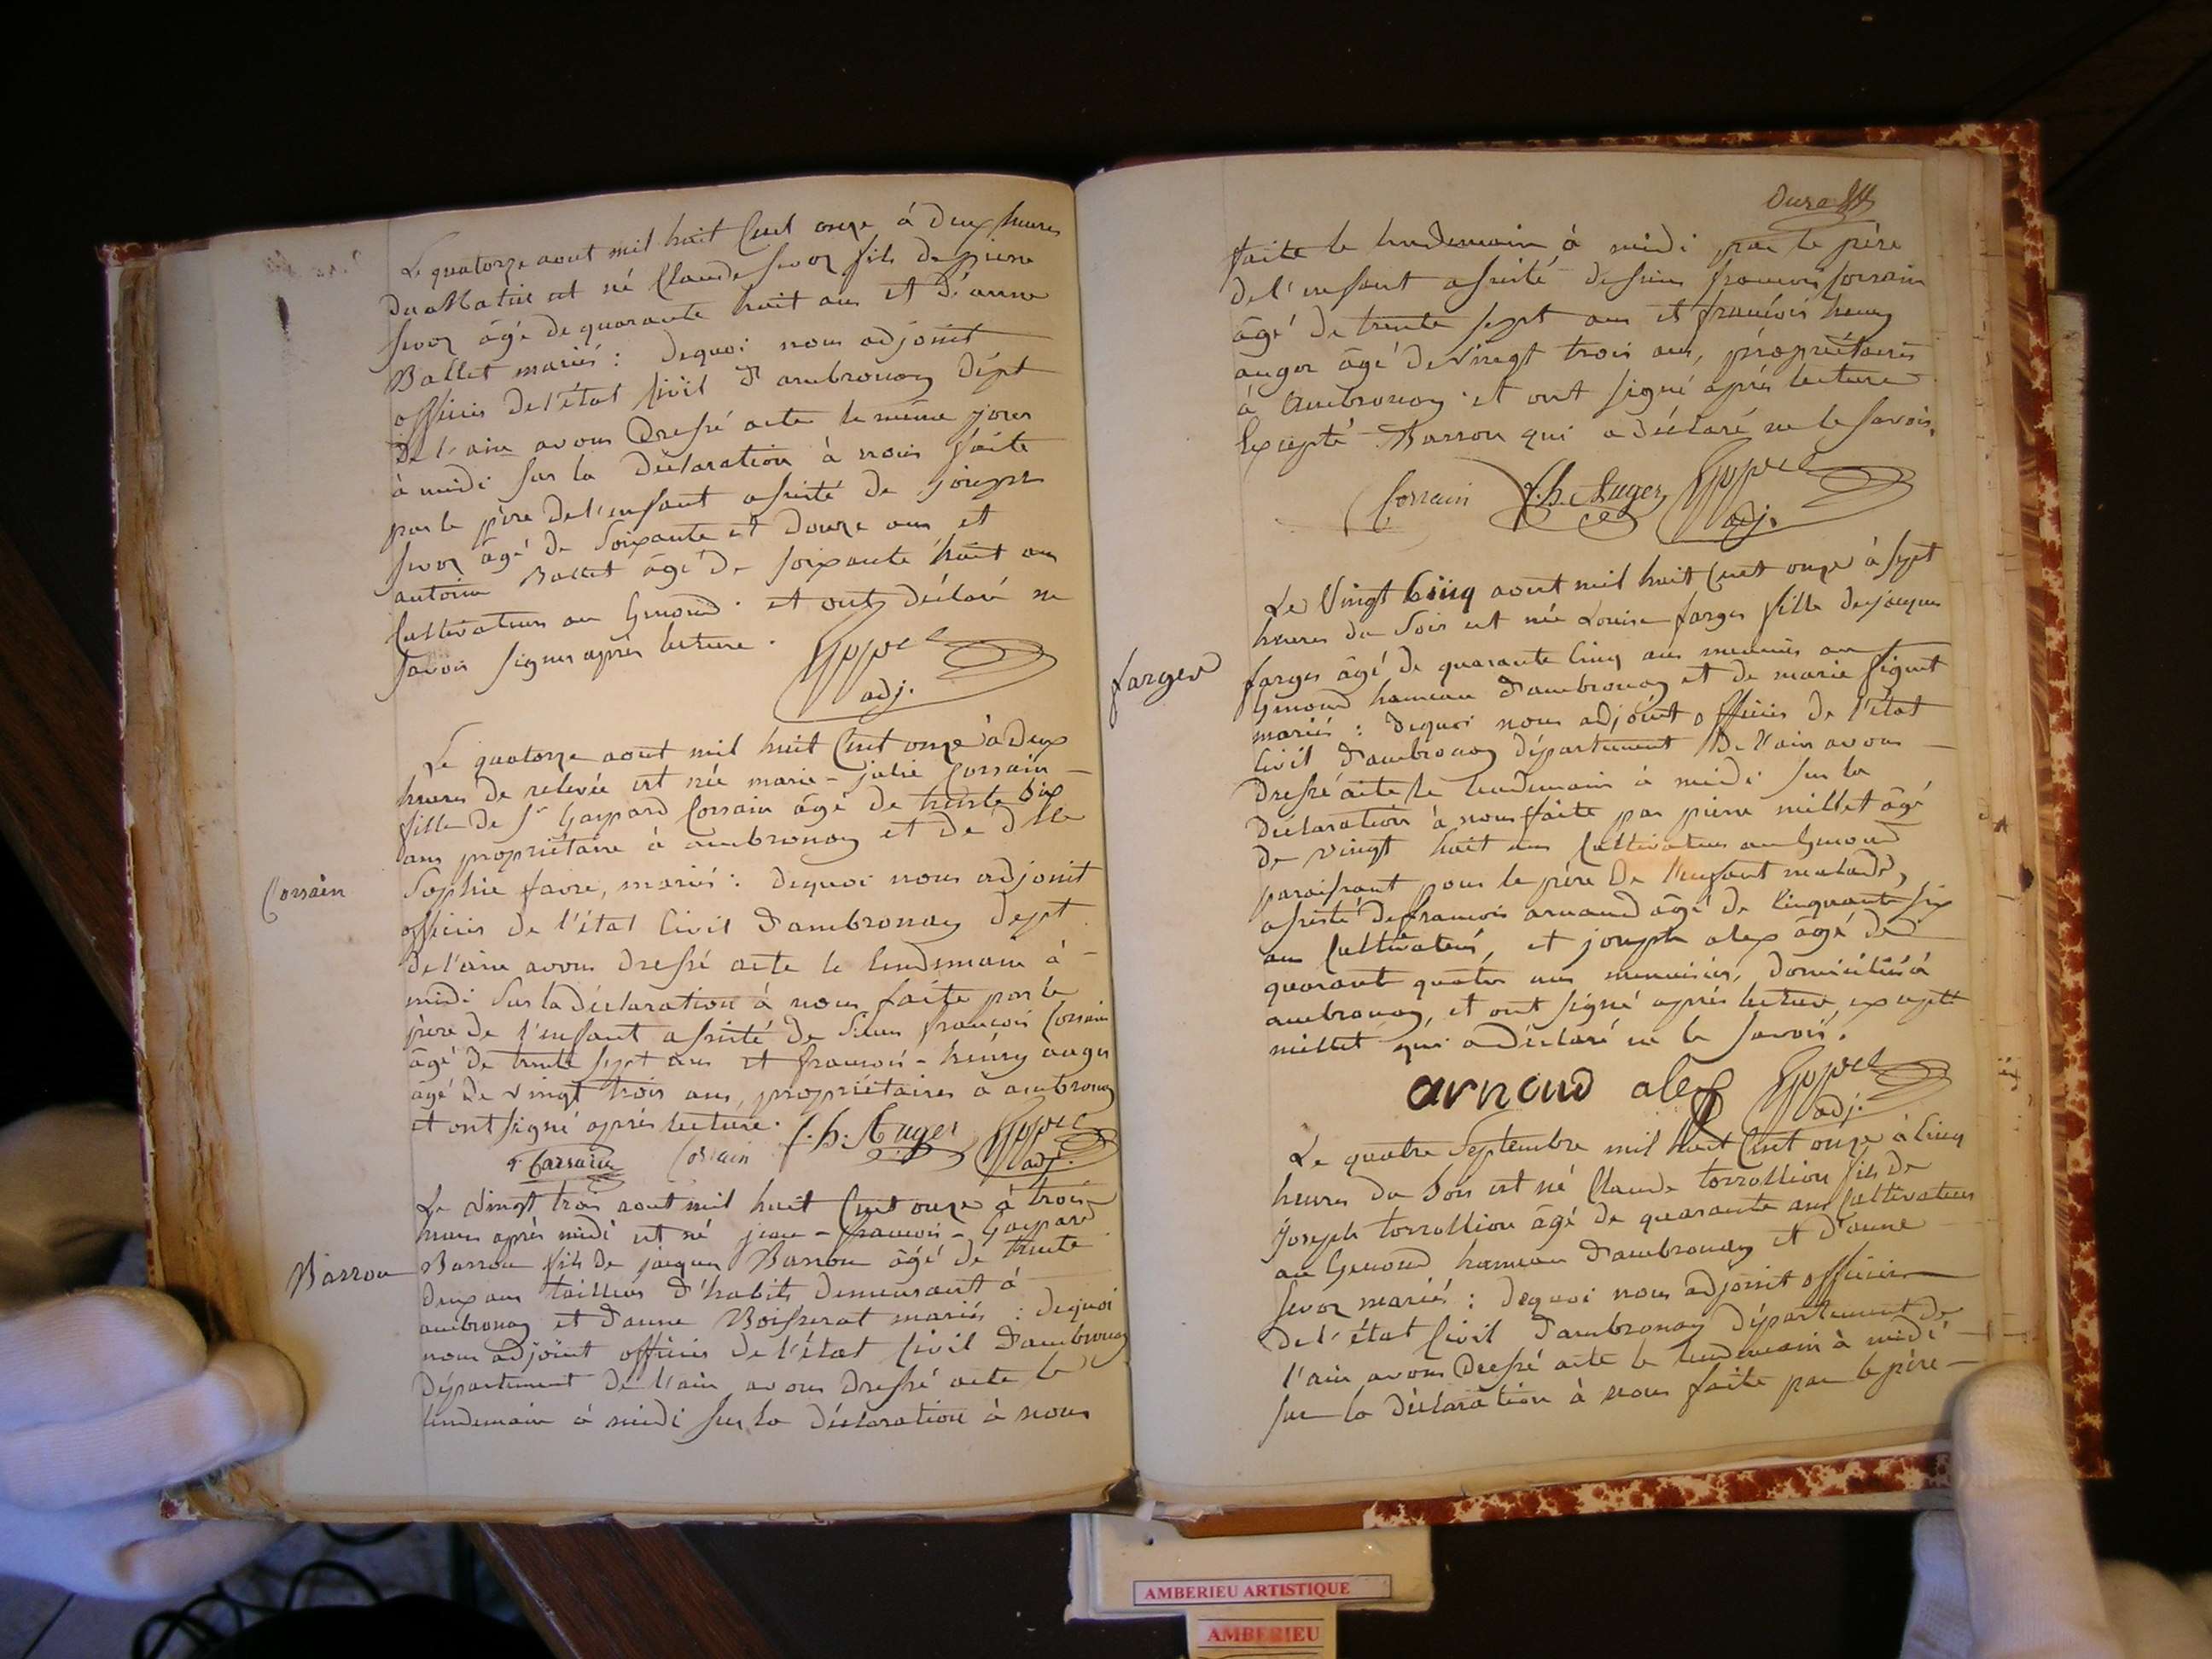 Le quatorze aout mil huit Cent onze à deux heures
du Matin est né Claude Sevoz fils de pierre
Sevoz âgé de quarante huit ans et d'anne
Ballet mariés : dequoi nous adjoint
officier de l'état Civil d'ambronay dépt
de l'ain avons dressé acte le même jour
à midi sur la déclaration à nous faite
par le père de l'enfant assisté de joseph
Sevoz âgé de Soixante et douze ans et
antoine Ballet âgé de soixante huit ans
Cultivateurs au Genoud et ont déclaré ne
savoir signer après lecture.
adj.
Le quatorze aout mil huit Cent onze à deux
heures de relevée est née marie-julie Corsain
fille de Sr Gaspard Corsain âgé de trente Six
ans propriétaire à ambronay et de dlle
Corsain
Sophie favre, mariés : dequoi nous adjoint
officier de l'état Civil d'ambronay dept
de l'ain avons dressé acte le lendemain à
midi sur la déclaration à nous faite par le
père de l'enfant assisté de Sieur françois Corsain
âgé de trente sept ans et françois-henry auger
âgé de vingt trois ans, propriétaires à ambronay
et ont signé après lecture.
Corsain Corsain f.h. Auger adj.
Le Vingt trois aout mil huit Cent onze à trois
heures après midi est né jean-françois-Gaspard
Barrou
Barrou fils de jacques Barrou âgé de trente
deux ans tailleur d'habits demeurant à
ambronay et d'anne Boisserat mariés : dequoi
nous adjoint officier de l'état Civil d'ambronay
Département de l'ain avons dressé acte le
lendemain à midi sur la déclaration à nous
faite le lendemain à midi par le père
de l'enfant assisté de sieur françois Corsain
âgé de trente sept ans et françois henry
auger âgé de Vingt trois ans, propriétaires
à Ambronay et ont signé après lecture
Excepté Barrou qui a déclaré ne le savoir.
Corsain f.h. Auger adj.
Le Vingt Cinq aout mil huit Cent onze à sept
heures du Soir est née Louise farges fille de jacques
farges
farges âgé de quarante Cinq ans menuisier au
Genoud hameau d'ambronay et de marie figuet
mariés : dequoi nous adjoint officier de l'état
Civil d'ambronay département de l'ain avons
dressé acte le lendemain à midi sur la
déclaration à nous faite par pierre millet âgé
de vingt huit ans Cultivateur au Genoud
paraissant pour le père de l'enfant malade,
assisté de françois arnaud âgé de Cinquante six
ans Cultivateur, et joseph alex âgé de
quarant quatre ans menuisier, domiciliés à
ambronay, et ont signé après lecture, excepté
millet qui a déclaré ne le savoir.
arnaud alex adj.
Le quatre Septembre mil huit Cent onze à Cinq
heures du Soir est né Claude torrollion fils de
Joseph torrollion âgé de quarante ans Cultivateur
au Genoud hameau d'ambronay et d'anne
Sevoz mariés : dequoi nous adjoint officier
de l'état Civil d'ambronay département de
l'ain avons dressé acte le lendemain à midi
sur la déclaration à nous faite par le père
AMBERIEU ARTISTIQUE
AMBERIEU